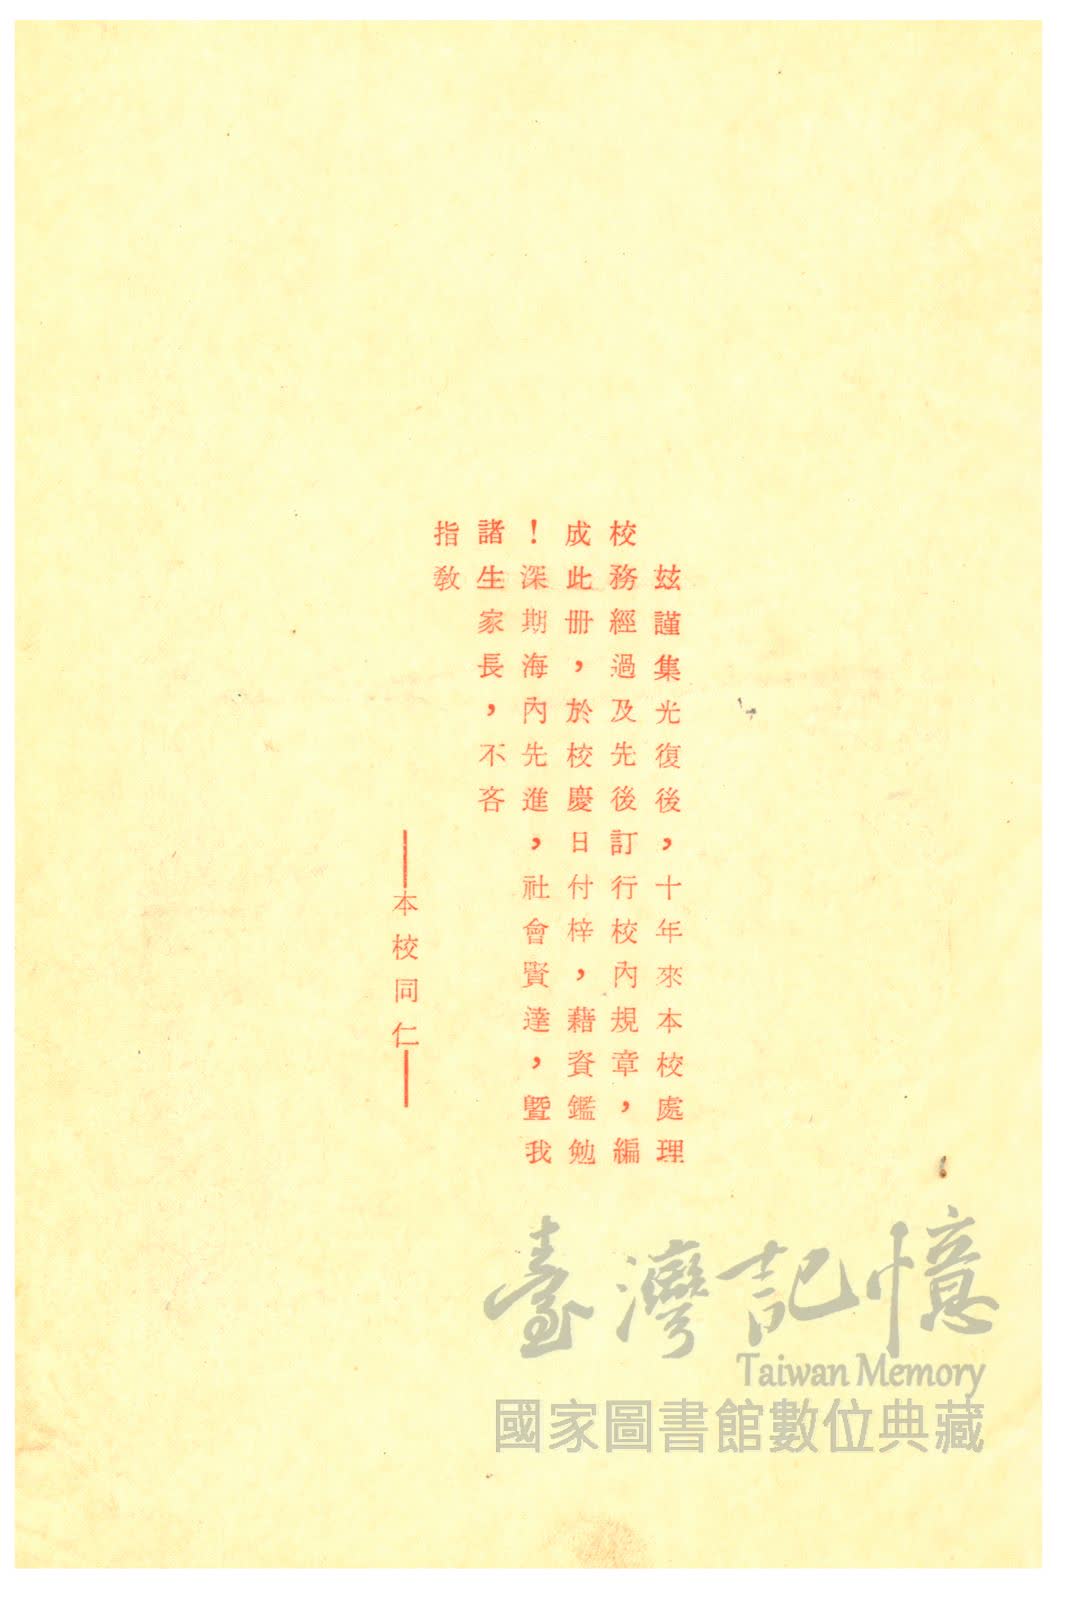 玆謹集光復後，十年來本校處理
校務經過及先後訂行校內規章，編
成此册，於校慶日付梓，藉資鑑勉
！深期海內先進，社會賢達，暨我
諸生家長，不吝
指教
——本校同仁——
臺灣記憶
Taiwan Memory
國家圖書館數位典藏